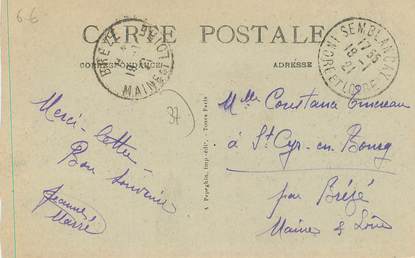 6-6
CARTE POSTALE
CORRESPONDANCE
ADRESSE
BRÉZÉ
MAINE
SEMBLANÇAY
INDRE ET LOIRE
17 35
18-1
21
37
Merci - lettre
Bon souvenir
Jeanne
Marré
A. Papeghin, imp.-édit. - Tours Paris
Mlle Constance
à St Cyr-en-Bourg
par Brézé
Maine & Loire